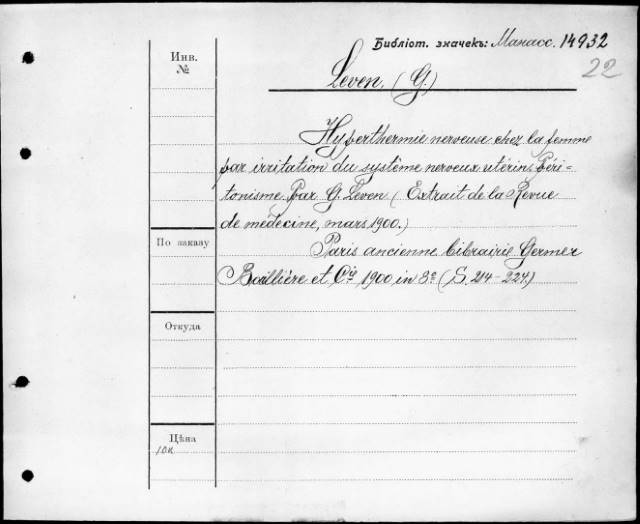 Библіот. значекъ: Манасс. 14932
22
Инв.
№
Leven, (G.)
Hyperthermie nerveuse chez la femme
par irritation du système nerveux utérin. Péri-
tonisme. Par G. Leven (Extrait de la Revue
de médecine, mars 1900.)
По заказу
Paris ancienne librairie Germer
Baillière et Cie 1900 in 8º (S. 214-224.)
Откуда
Цѣна
10к